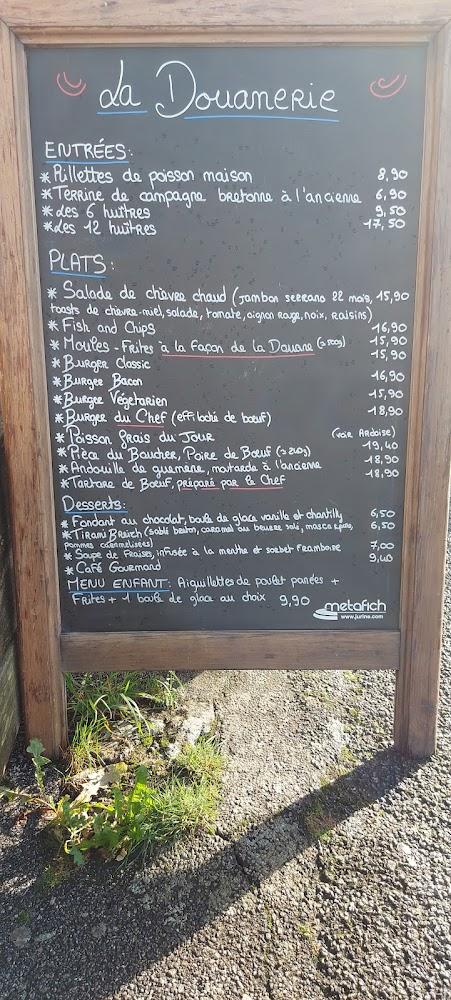 La Douanerie
ENTRÉES:
* Rillettes de poisson maison 8,90
* Terrine de campagne bretonne à l'ancienne 6,90
* Les 6 huîtres 9,50
* Les 12 huîtres 17,50
PLATS:
* Salade de chèvre chaud (Jambon serrano 22 mois, 15,90
toasts de chèvre-miel, salade, tomate, oignon rouge, noix, raisins)
* Fish and Chips 16,90
* Moules-Frites à la Façon de la Douane 15,90
* Burger Classic 15,90
* Burger Bacon 16,90
* Burger Végétarien 15,90
* Burger du Chef (effiloché de bœuf) 18,90
* Poisson frais du Jour (voir Ardoise)
* Pièce du Boucher, Poire de Bœuf 19,40
* Andouille de guémené, moutarde à l'ancienne 18,90
* Tartare de Bœuf, préparé par le Chef 18,90
Desserts:
* Fondant au chocolat, boule de glace vanille et chantilly 6,50
* Tirami Breizh (sablé breton, caramel au beurre salé, mascarpone, 6,50
pommes caramélisées)
* Soupe de Fraises, infusée à la menthe et sorbet framboise 7,00
* Café Gourmand 9,40
MENU ENFANT: Aiguillettes de poulet panées +
Frites + 1 boule de glace au choix 9,90
metafich
www.jurine.com